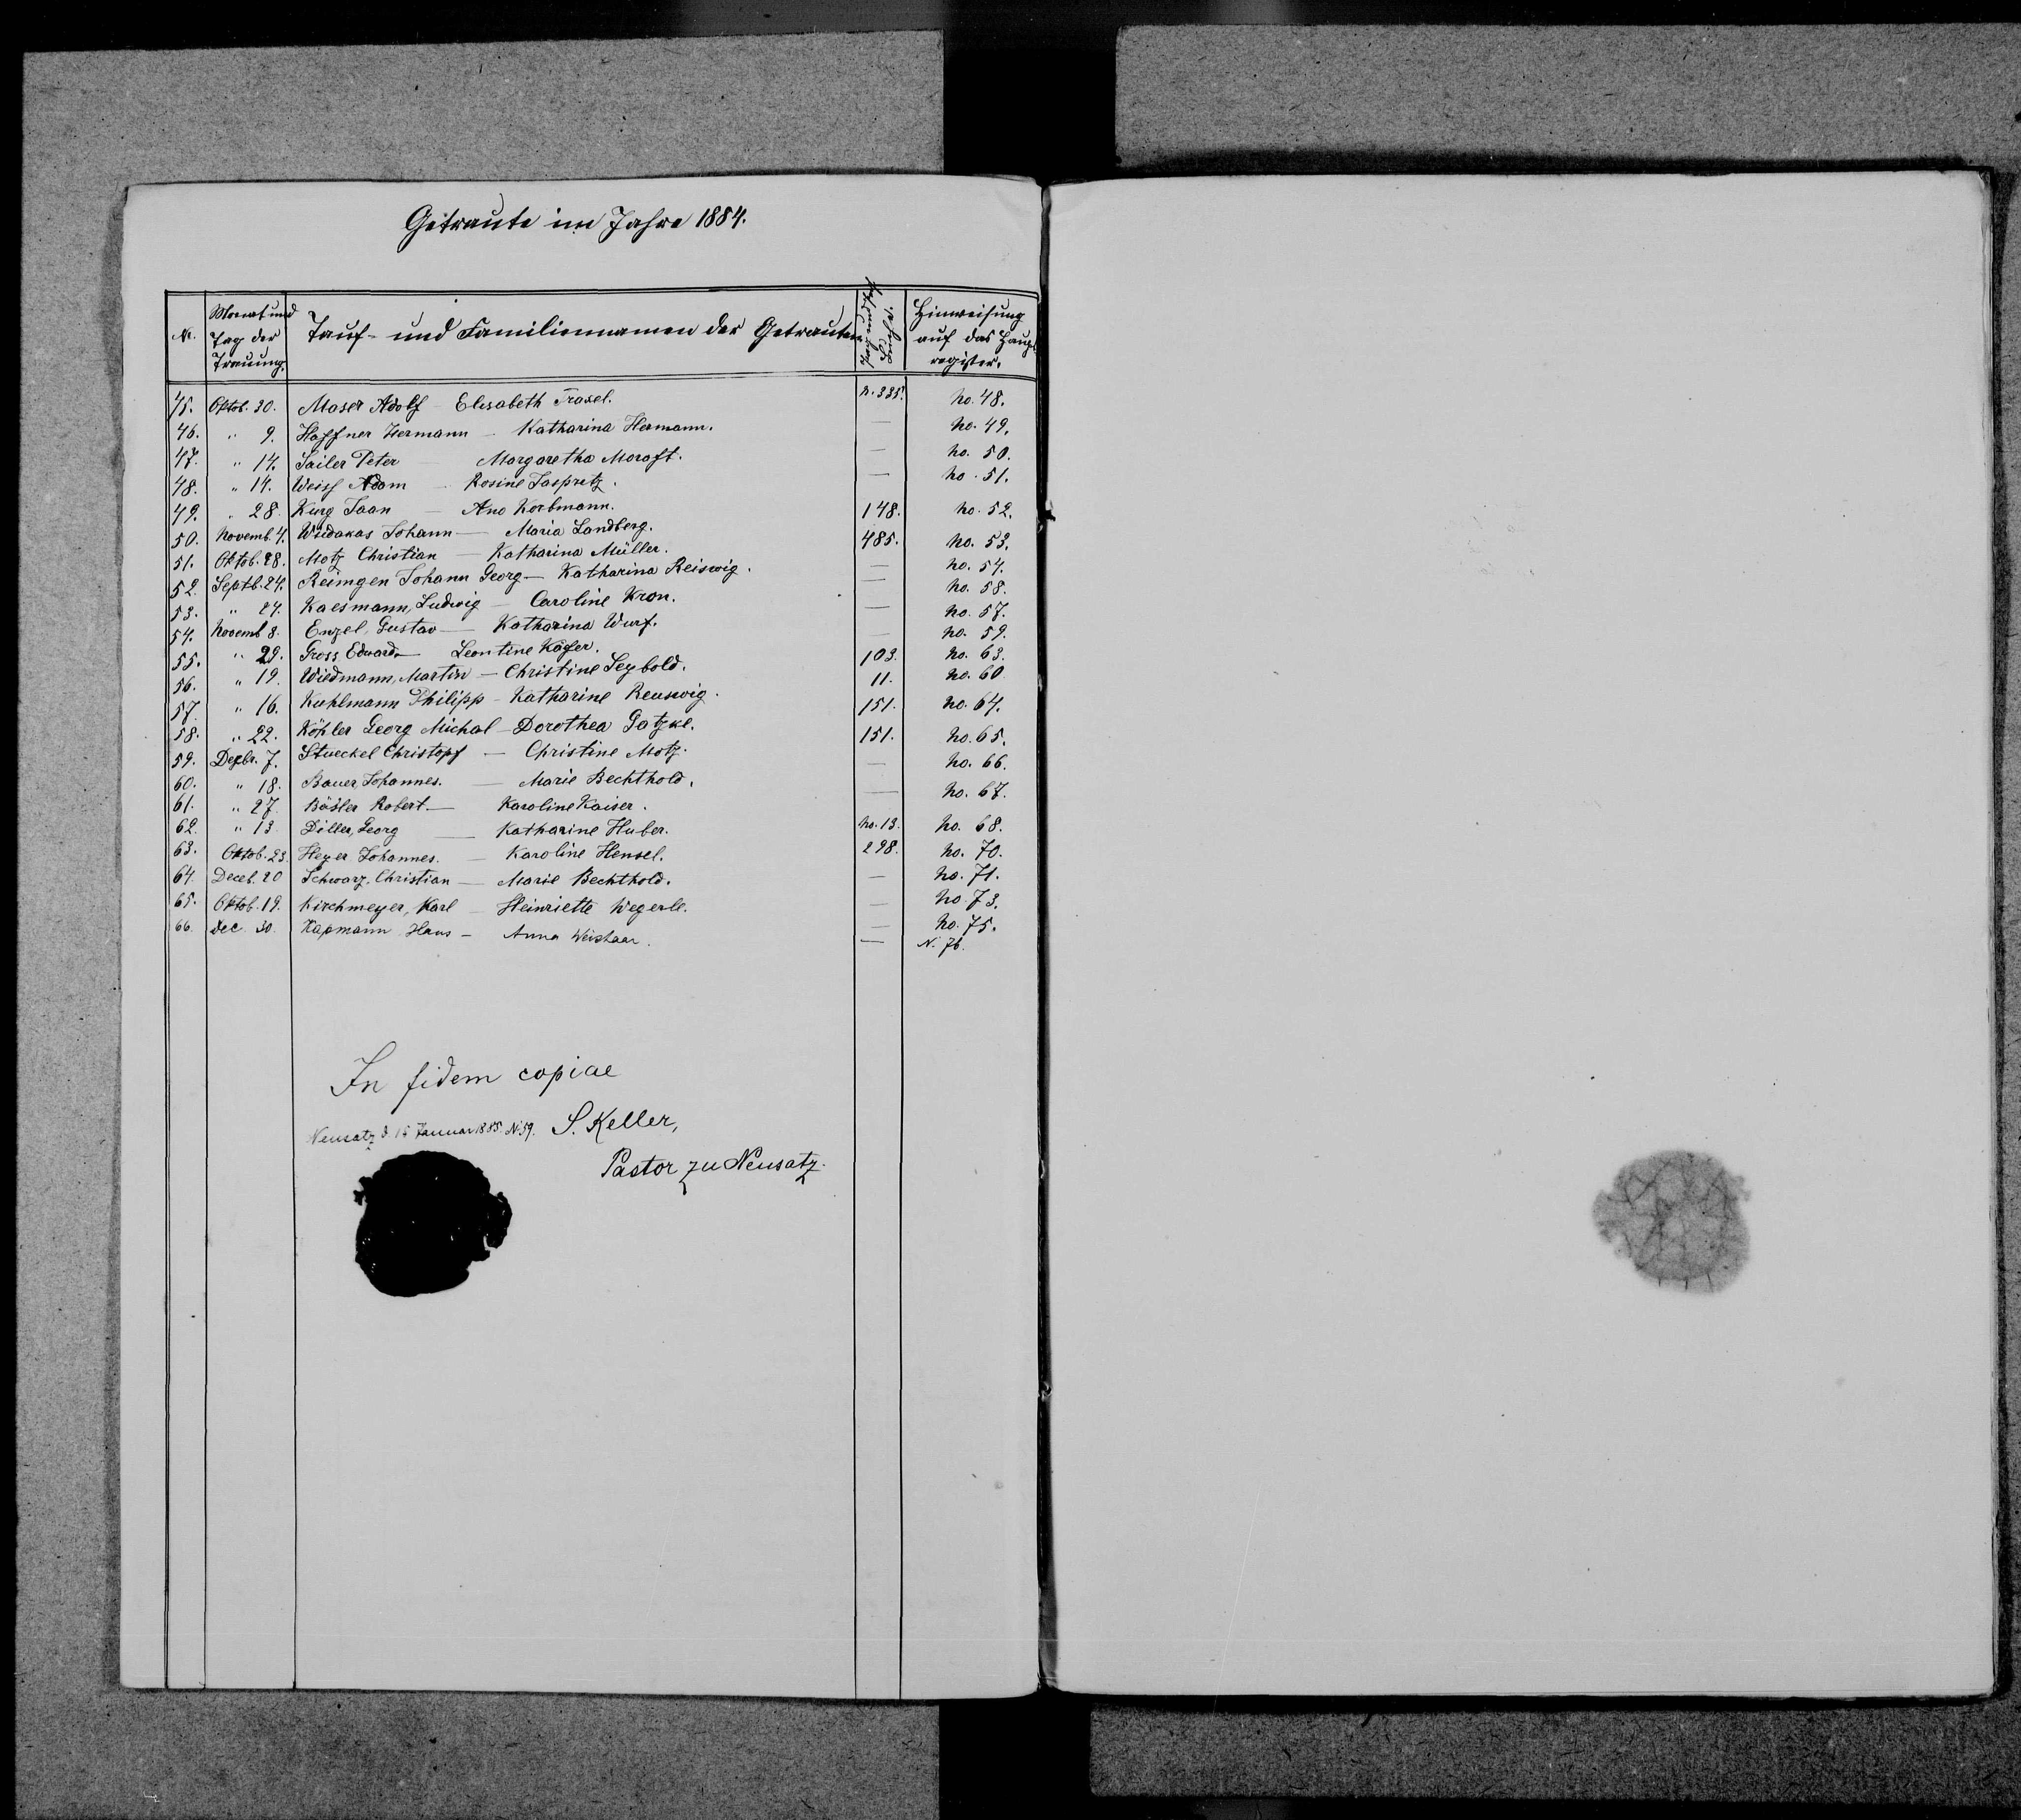 Getraute im Jahre 1884.
No. Monat und Tag der Trauung. Tauf- und Familiennamen der Getrauten Hinweisung auf das Haupt register.
45. Oktob. 30. Moser Adolf - Elisabeth Trasel. N. 335. No. 48.
46. " 9. Haffner Hermann - Katharina Hermann. — No. 49.
47. " 14. Sailer Peter — Margaretha Moraft. — No. 50.
48. " 14. Weiss Adam - Rosine Jaspretz. — No. 51.
49. " 28. Kurg Jaan — Ano Korbmann. 148. No. 52.
50. Novemb. 4. Johann — Maria Landberg. 485. No. 53.
51. Oktob. 28. Motz Christian — Katharina Müller. — No. 54.
52. Septb. 24. Reimgen Johann Georg — Katharina Reiswig. — No. 58.
53. " 24. Kaesmann, Ludwig — Caroline Kron. — No. 57.
54. Novemb 8. Enzel, Gustav — Katharina Wurf. — No. 59.
55. " 29. Gross Eduard — Leontine Käfer. 103. No. 63.
56. " 19. Wiedmann, Martin — Christine Seybold. 11. No. 60
57. " 16. Kuhlmann Philipp - Katharine Reuswig. 151. No. 64.
58. " 22. Köhler Georg Michal - Dorothea Gatzke. 151. No. 65.
59. Dezbr. 7. Stueckel Christopf — Christine Motz. — No. 66.
60. " 18. Bauer, Johannes. — Marie Bechthold. — No. 67.
61. " 27. Bäsler Robert. — Karoline Kaiser.
62. " 13. Döller, Georg — Katharine Huber. No. 13. No. 68.
63. Oktob. 23. Heyer Johannes. — Karoline Hensel. 298. No. 70.
64. Deceb. 20 Schwarz, Christian — Marie Bechthold. — No. 71.
65. Oktob. 19. Kirchmeyer, Karl — Heinriette Wegerle. — No. 73.
66. Dec 30. Kapmann Hans — Anna Weishaar. — No. 75.
— N. 76.
In fidem copiae
Neusatz d. 15 Januar 1885. N. 59. S. Keller,
Pastor zu Neusatz.